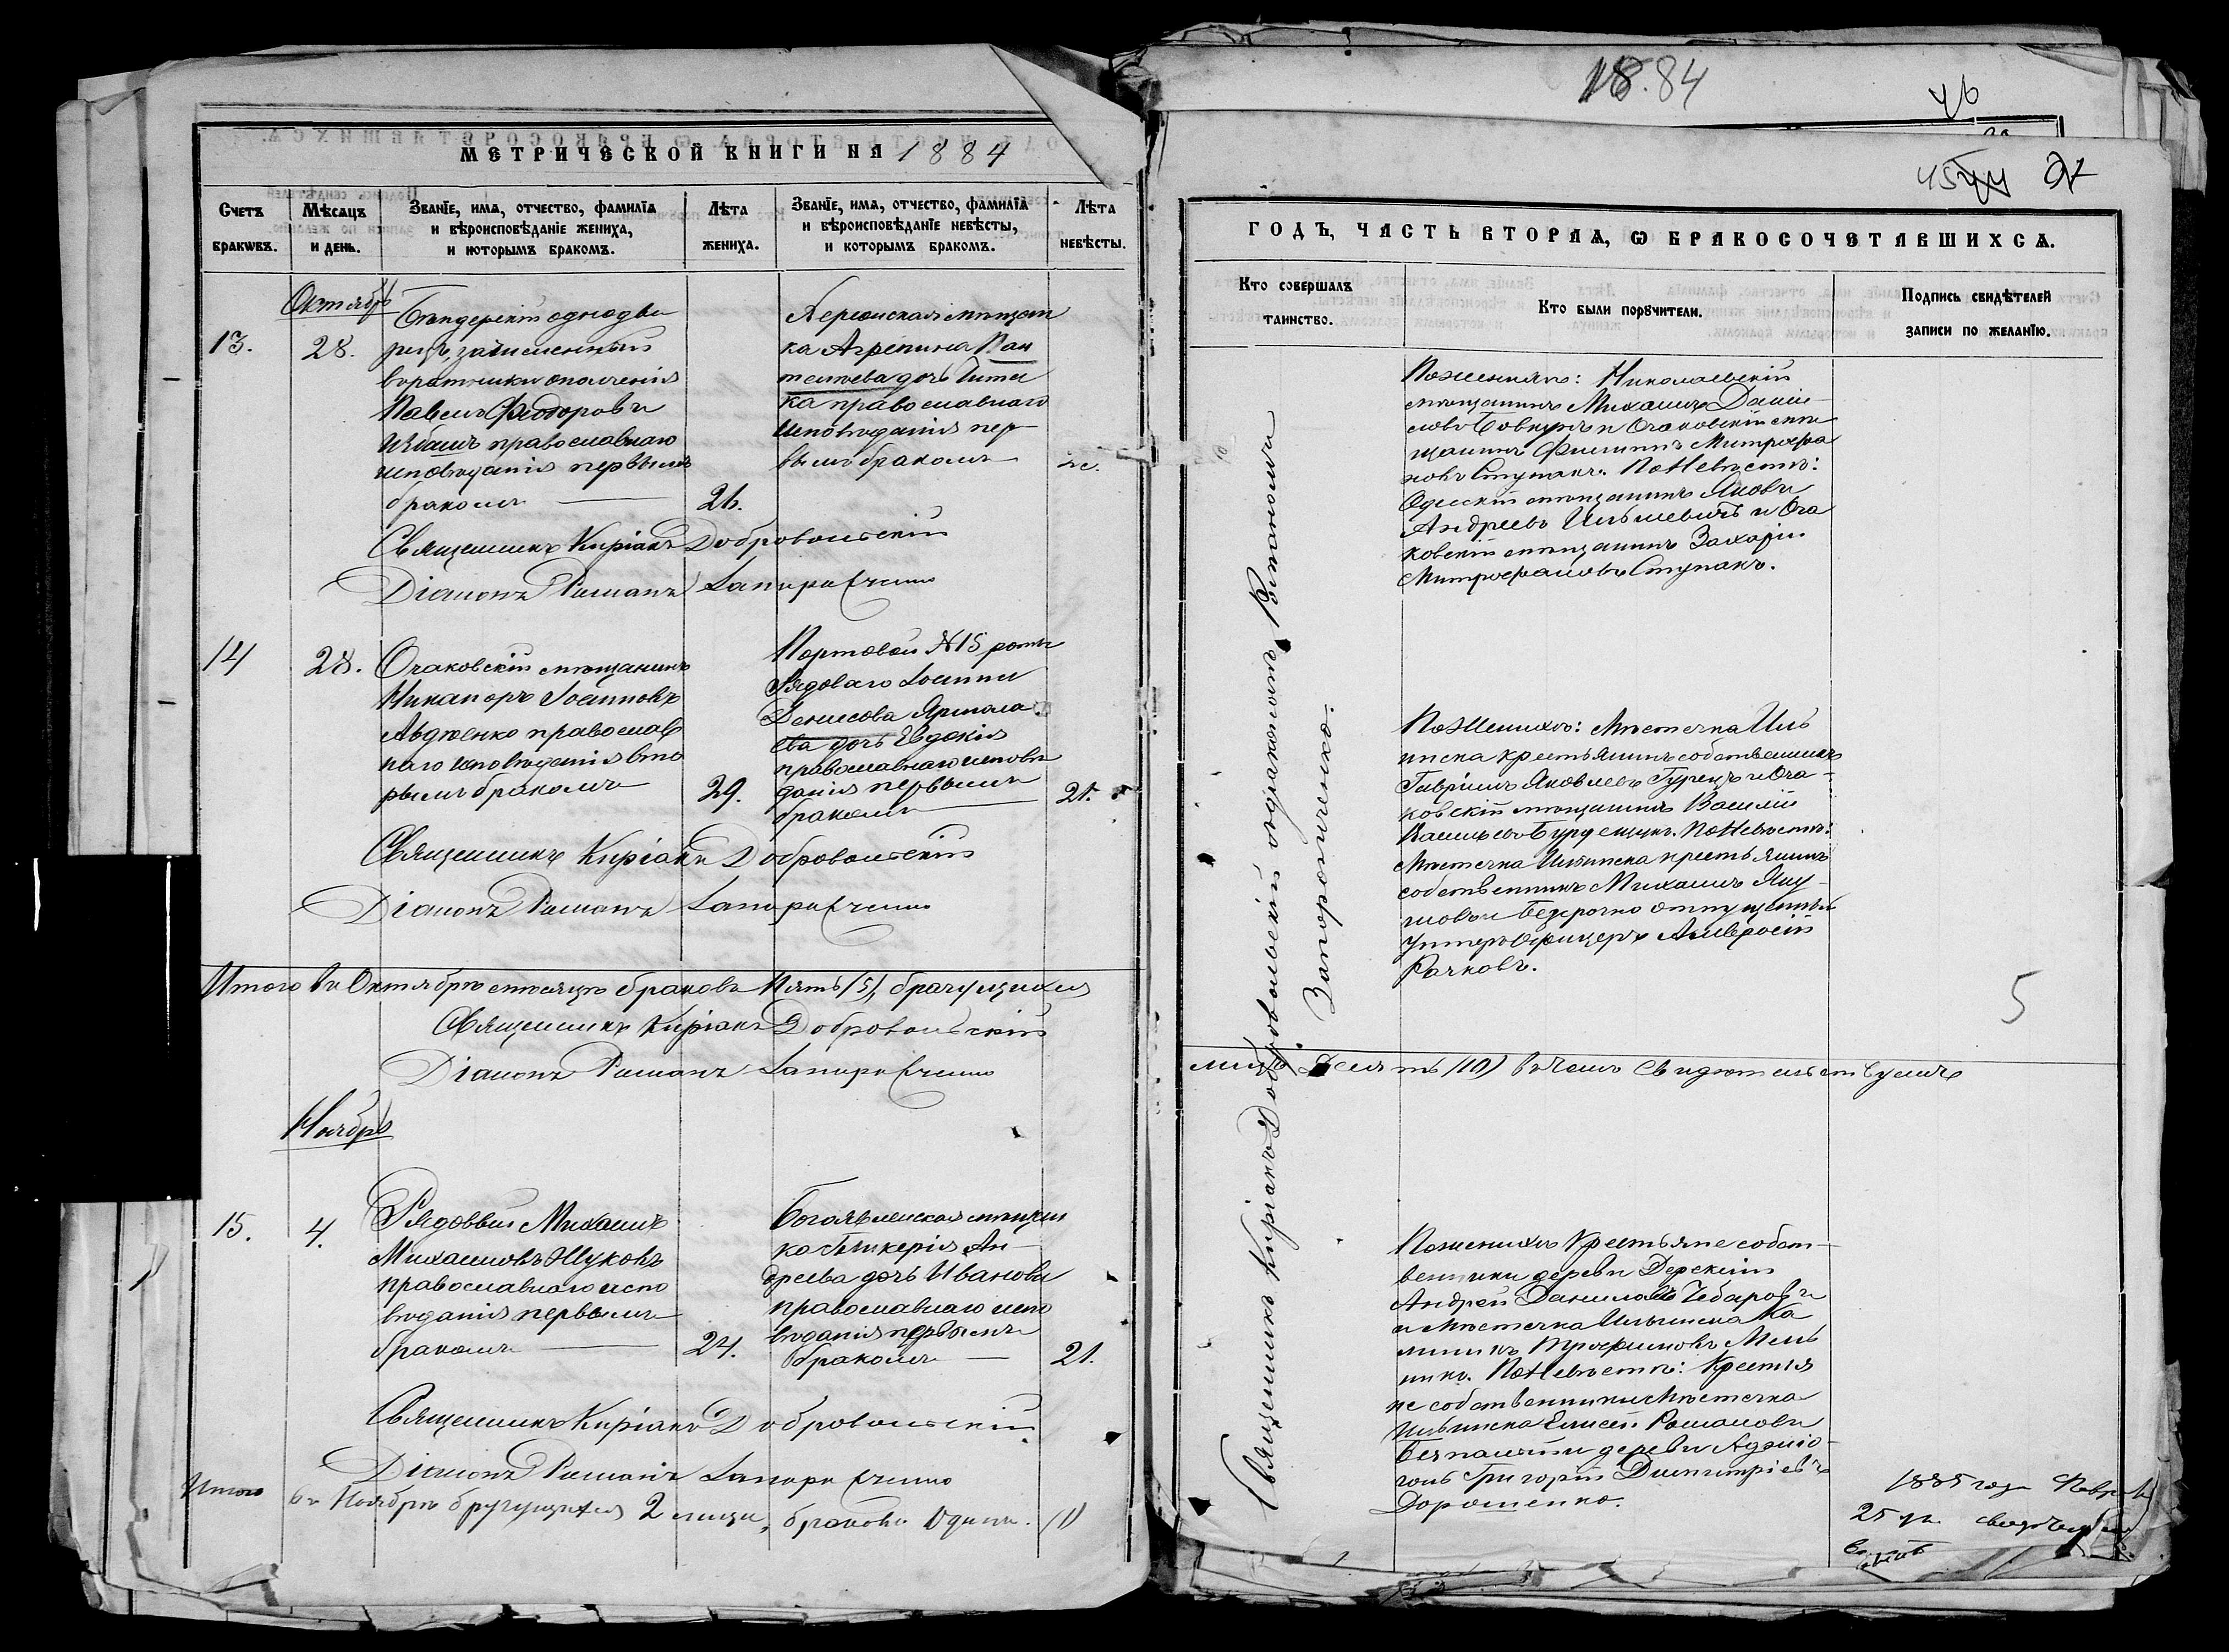 МЕТРИЧЕСКОЙ КНИГИ НА 1884
Счетъ браковъ.
Мѣсяцъ и день.
Званіе, имя, отчество, фамилія
и вѣроисповѣданіе жениха,
и которымъ бракомъ.
Лѣта
жениха.
Званіе, имя, отчество, фамилія
и вѣроисповѣданіе невѣсты,
и которымъ бракомъ.
Лѣта
невѣсты.
Октябрь
13.
28.
Бендерскій однодво
рецъ, записанный
въ ратники ополченія
Павелъ Феодоровъ
православнаго
исповѣданія первымъ
бракомъ
26.
Херсонская мѣщан
ка Агрепина Пан
телѣева дочь
ка православнаго
исповѣданія пер
вымъ бракомъ
Священникъ Киріакъ Добровольскій
Діаконъ Романъ Запорожченко
14
28.
Очаковскій мѣщанинъ
Никаноръ Іоанновъ
Авдѣенко православ
наго исповѣданія вто
рымъ бракомъ
29.
Портовой №15 роты
Рядоваго Іоанна
Денисова Ярмола
ева дочь Евдокія
православнаго исповѣ
данія первымъ
бракомъ
21.
Священникъ Киріакъ Добровольскій
Діаконъ Романъ Запорожченко
Итого въ Октябрѣ мѣсяцѣ браковъ Пять (5), брачущихся
Священникъ Киріакъ Добровольскій
Діаконъ Романъ Запорожченко
Ноябрь
15.
4.
Рядовый Михаилъ
Михаиловъ Жуковъ
православнаго испо
вѣданія первымъ
бракомъ
24.
Богоявленская мѣщан
ка Гликерія Ан-
дреева дочь Иванова
православнаго испо
вѣданія первымъ
бракомъ
21.
Священникъ Киріакъ Добровольскій.
Діаконъ Романъ Запорожченко
Итого въ Ноябрѣ брачущихся 2 лица, браковъ Одинъ. (1)
1884
46
45 44
ГОДЪ, ЧАСТЬ ВТОРАЯ, Ѡ БРАКОСОЧЕТАВШИХСЯ.
Кто совершалъ
таинство.
Кто были поручители.
Подпись свидѣтелей
записи по желанію.
Священникъ Киріакъ Добровольскій съ діакономъ Романомъ
Запорожченко.
По женихѣ: Николаевскій
мѣщанинъ Михаилъ Даніи-
ловъ Бовкунъ и Очаковскій мѣ
щанинъ Филиппъ Митрофа
новъ Ступакъ. По Невѣстѣ:
Одесскій мѣщанинъ Яковъ
Андреевъ Ильшевичъ и Оча
ковскій мѣщанинъ Захарій
Митрофановъ Ступакъ.
По Женихѣ: Мѣстечка Иль
инска крестьянинъ собственникъ
Гавріилъ Яковлевъ Гурецъ и Оча-
ковскій мѣщанинъ Василій
Васильевъ. По Невѣстѣ:
Мѣстечка Ильинска крестьянинъ
собственникъ Михаилъ
отпущенный
Унтеръ Офицеръ Амвросій
Рачковъ.
5
мися Десять (10) въ чемъ свидѣтельствуемъ
По женихѣ Крестьяне собст-
венники деревни
Андрей Даниловъ Чебаровъ
и Мѣстечка Ильинска Ка
линикъ Трофимовъ Мель
никъ. По Невѣстѣ: Крестья
не собственники Мѣстечка
Ильинска Елисей Романовъ
Безпалый и деревни Аджіо-
голь Григорій Димитріевъ
Дорошенко.
1885 года Февр
25 д.